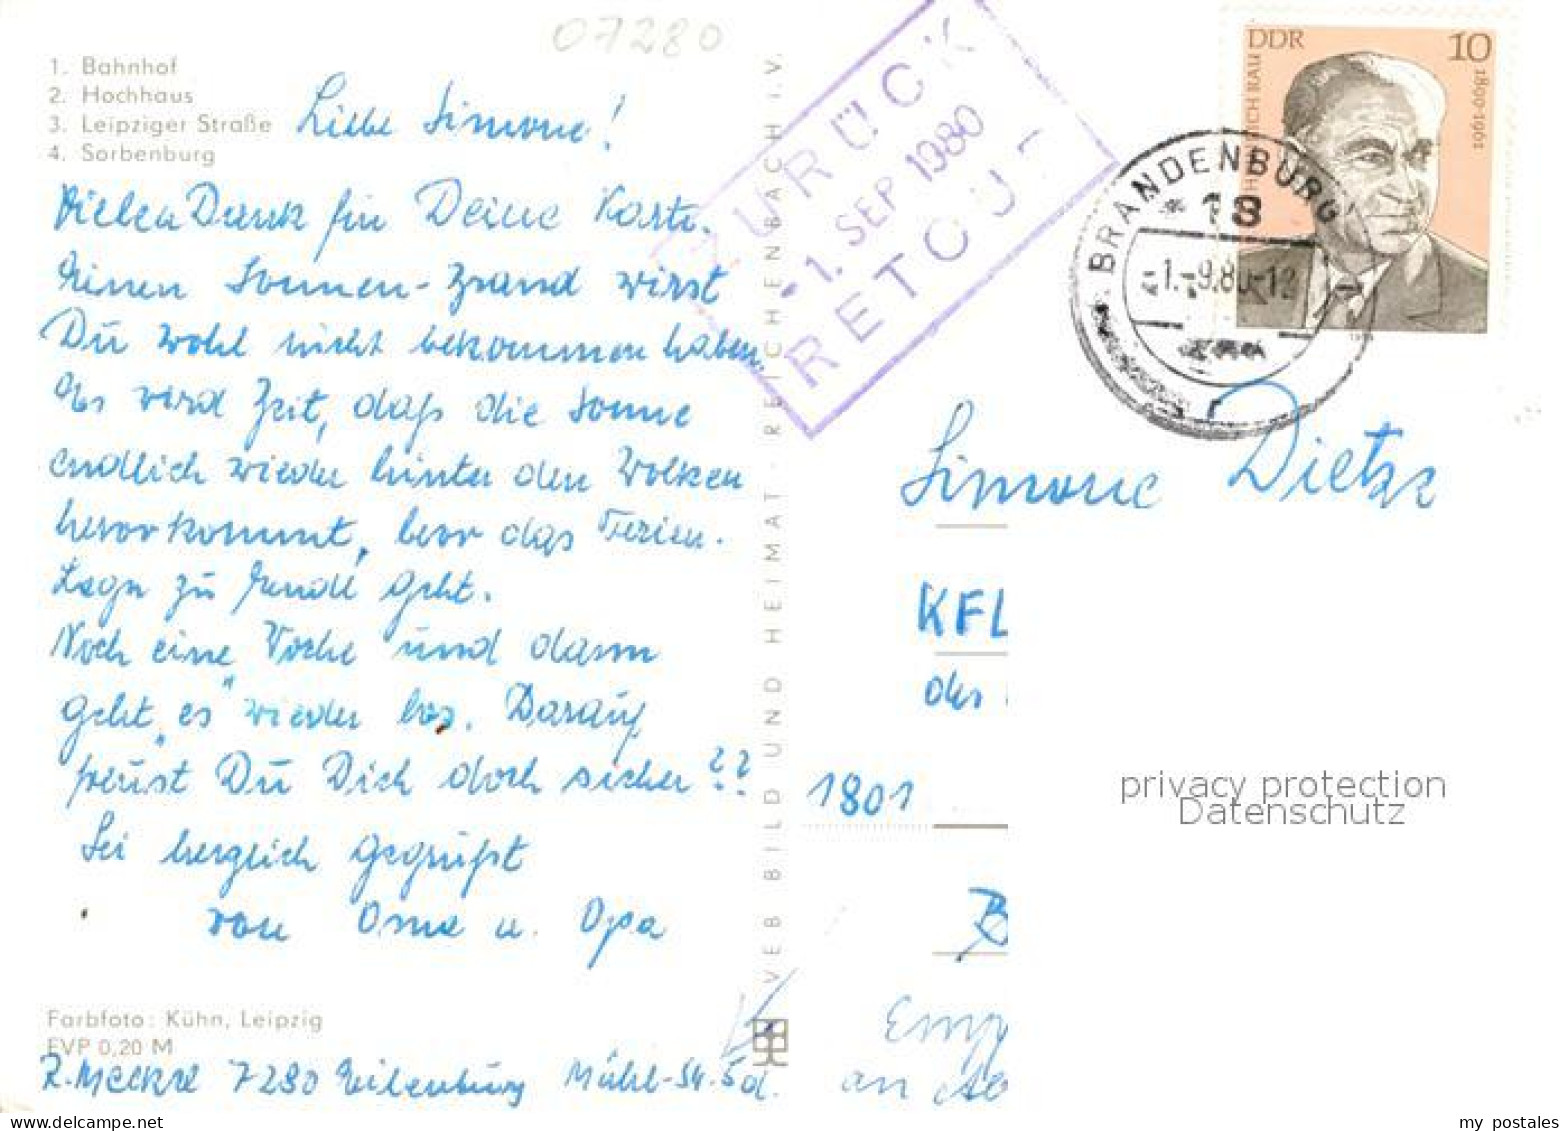 07280
1. Bahnhof
2. Hochhaus
3. Leipziger Straße
4. Sorbenburg
Liebe Simone!
Vielen Dank für Deine Karte.
Einen Sonnen-Brand wirst
Du wohl nicht bekommen haben.
Es wird Zeit, daß die Sonne
endlich wieder hinter den Wolken
hervorkommt, bevor das Ferien-
Lager zu Ende geht.
Noch eine Woche und dann
geht „es" wieder los. Darauf
freust Du Dich doch sicher??
Sei herzlich gegrüßt
von Oma u. Opa
Farbfoto: Kühn, Leipzig
EVP 0,20 M
7280 Eilenburg
VEB BILD UND HEIMAT · REICHENBACH I. V.
ZURÜCK
-1. SEP 1980
RETOUR
DDR
10
HEINRICH RAU
1899-1961
BRANDENBURG
18
-1.-9.80-12
Simone Dietze
KFL
des
1801
B
Emp
an
privacy protection
Datenschutz
my postales